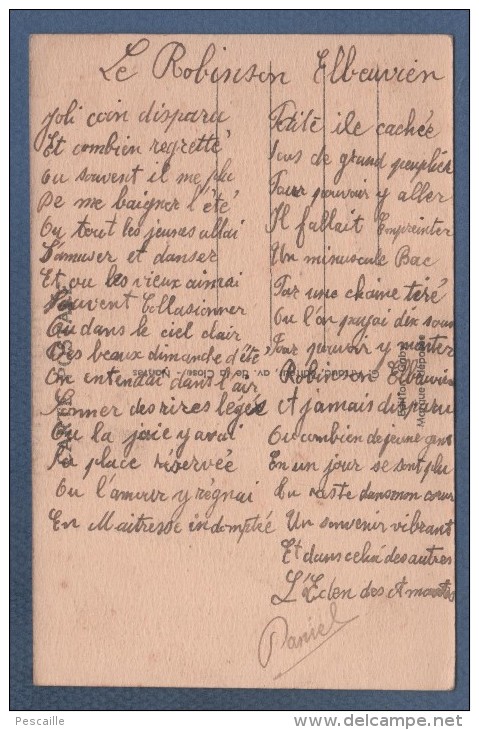 Le Robinson Elbeuvien
Joli coin disparu
Et combien regretté
Ou souvent il me plu
De me baigner l'été
Ou tout les jeunes allai
S'amuser et danser
Et ou les vieux aimai
Souvent Collasionner
Ou dans le ciel clair
Des beaux dimande d'été
On entendai dans l'air
Sonner des rires légés
Ou la joie y avai
Sa place reservée
Ou l'amour y régnai
En Maitresse indomptée
Petite ile cachée
Sous de grand peuplié
Pour pouvoir y aller
Il fallait Empreinter
Un minuscule Bac
Par une chaine tiré
Ou l'on payai dix sous
Pour pouvoir y monter
Robinson Elbeuvien
A jamais disparu
Ou combien de jeune gens
En un jour se sont plu
Tu reste dans mon cœur
Un souvenir vibrant
Et dans celui des autres
L'Eden des Amants
Daniel
CARTE POSTALE
av. de la Close - Nantes
Marque déposée
Pescaille
http://www.delcampe.net